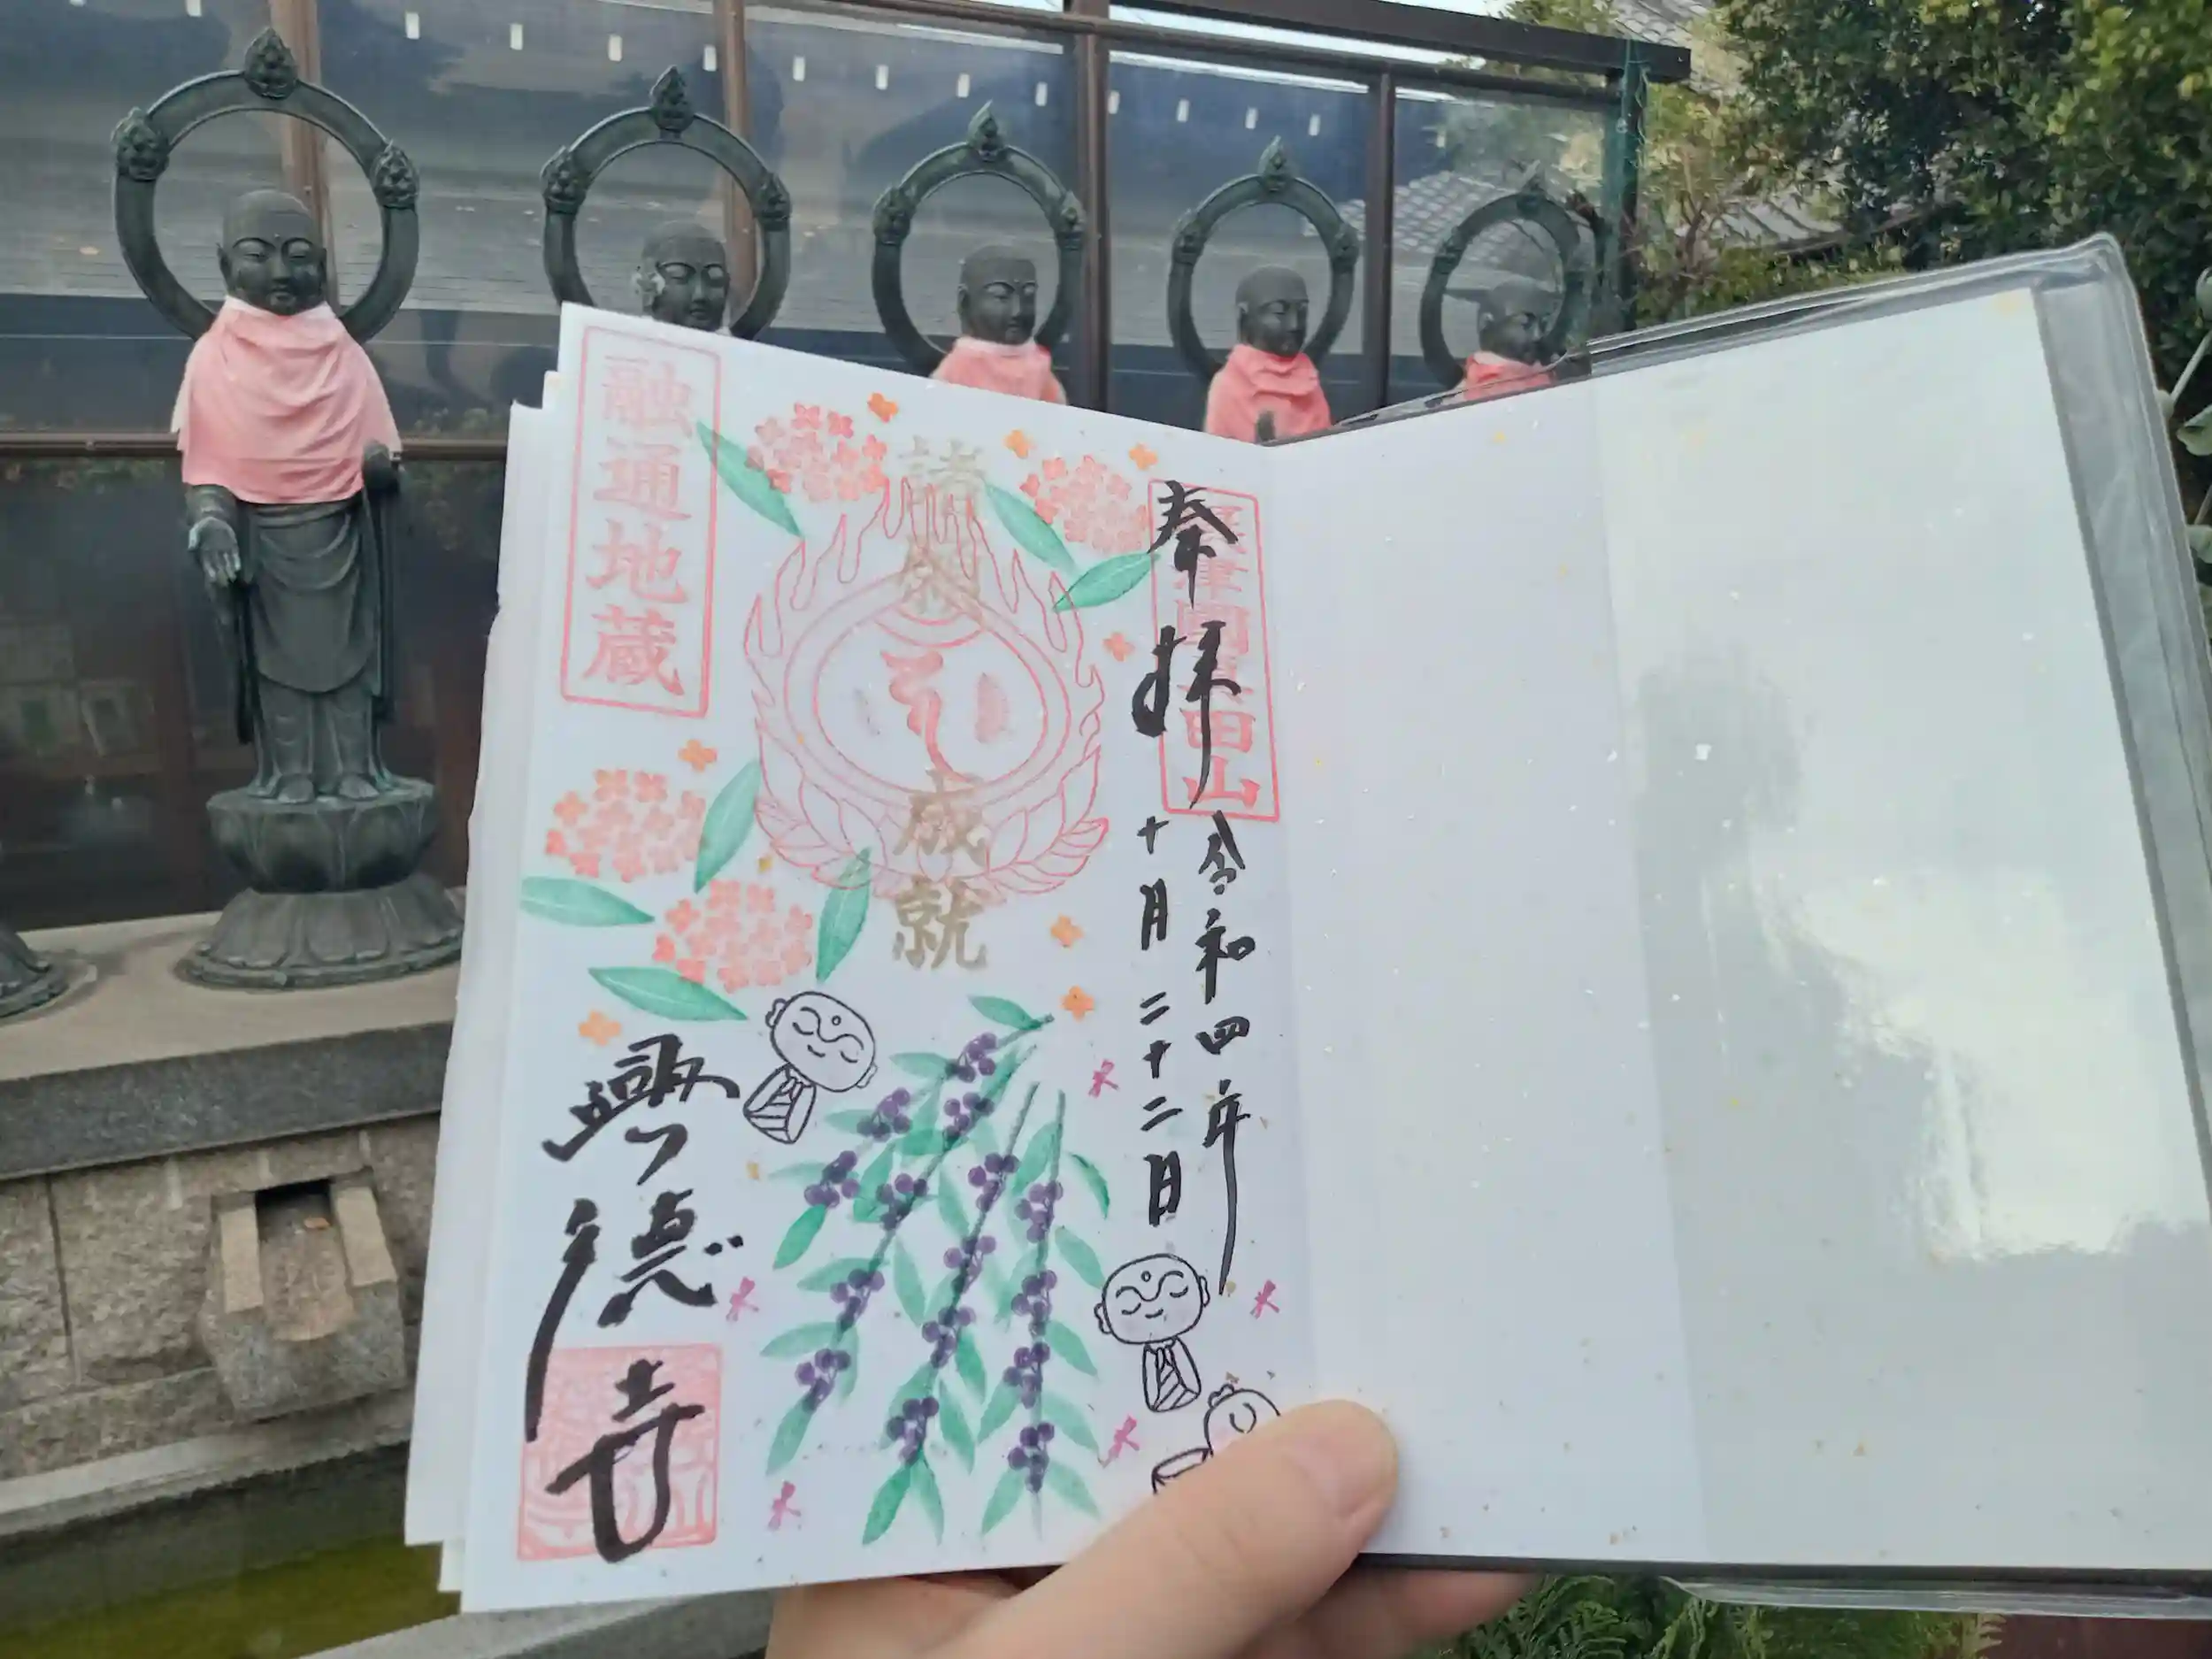 奉拝
摂津国真田山
令和四年
十月二十二日
諸願成就
融通地蔵
興徳寺